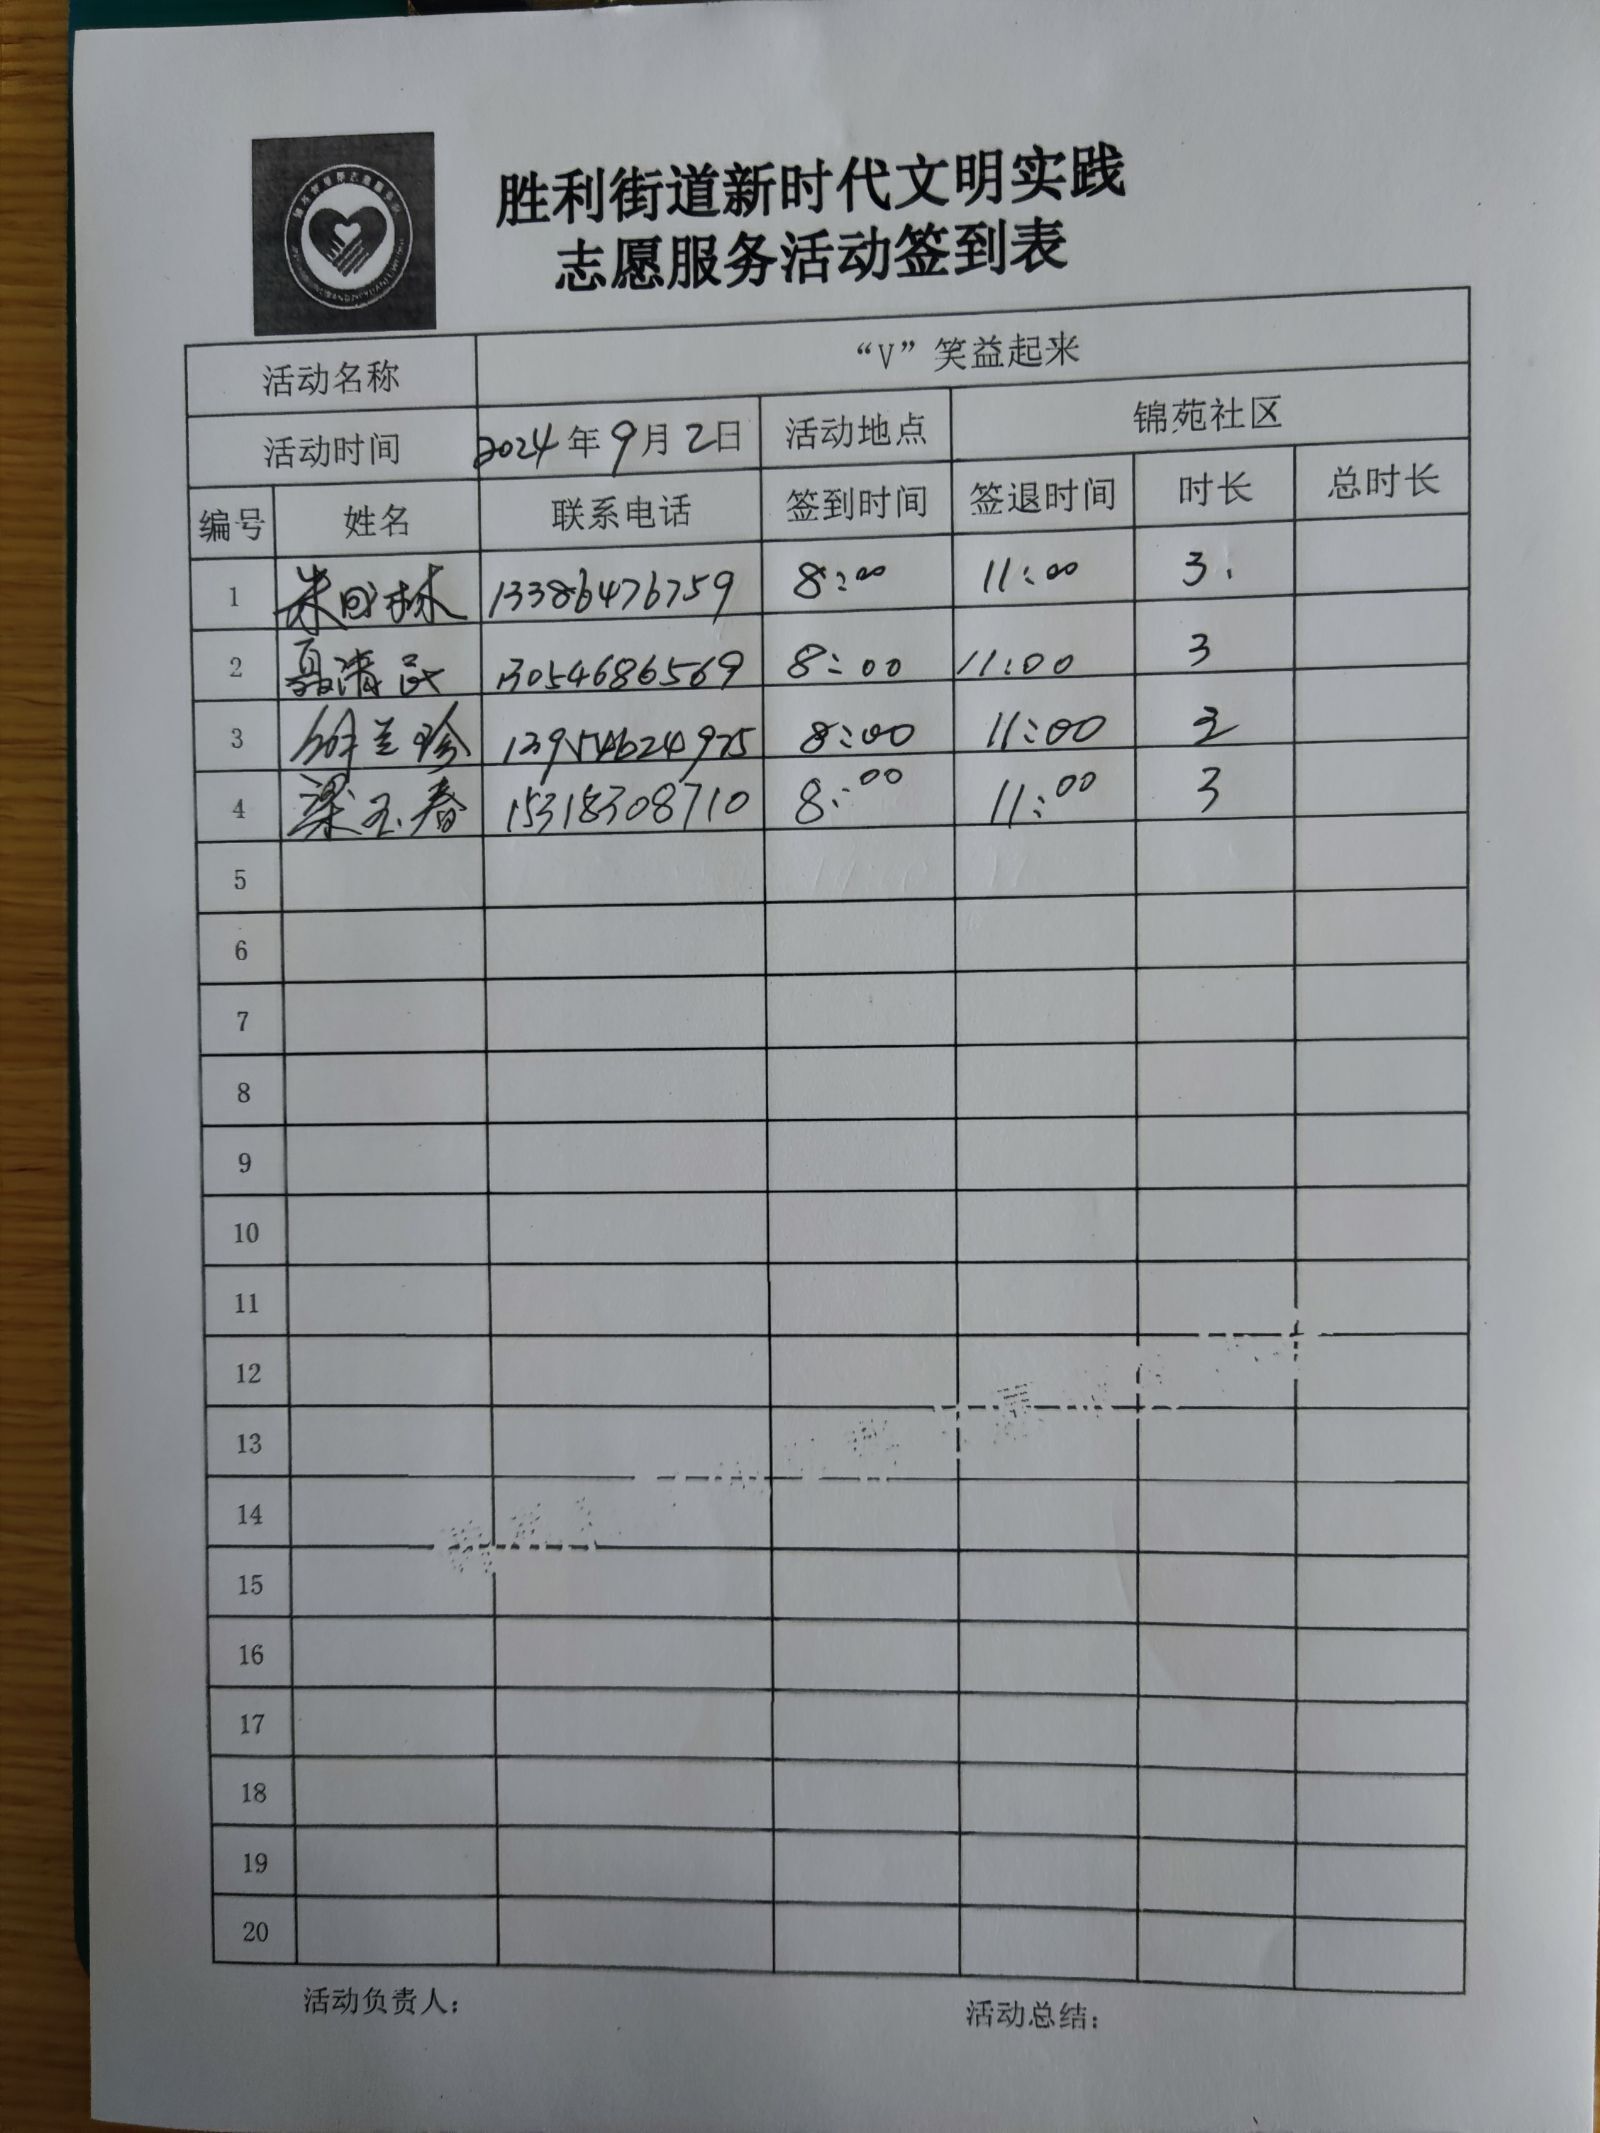 胜利街道新时代文明实践
志愿服务活动签到表
活动名称 “V”笑益起来
活动时间 2024年9月2日 活动地点 锦苑社区
编号 姓名 联系电话 签到时间 签退时间 时长 总时长
1 13386476759 8:00 11:00 3.
2 聂清民 13054686569 8:00 11:00 3
3 兰珍 13954624975 8:00 11:00 3
4 梁玉春 15318308710 8:00 11:00 3
5
6
7
8
9
10
11
12
13
14
15
16
17
18
19
20
活动负责人: 活动总结: